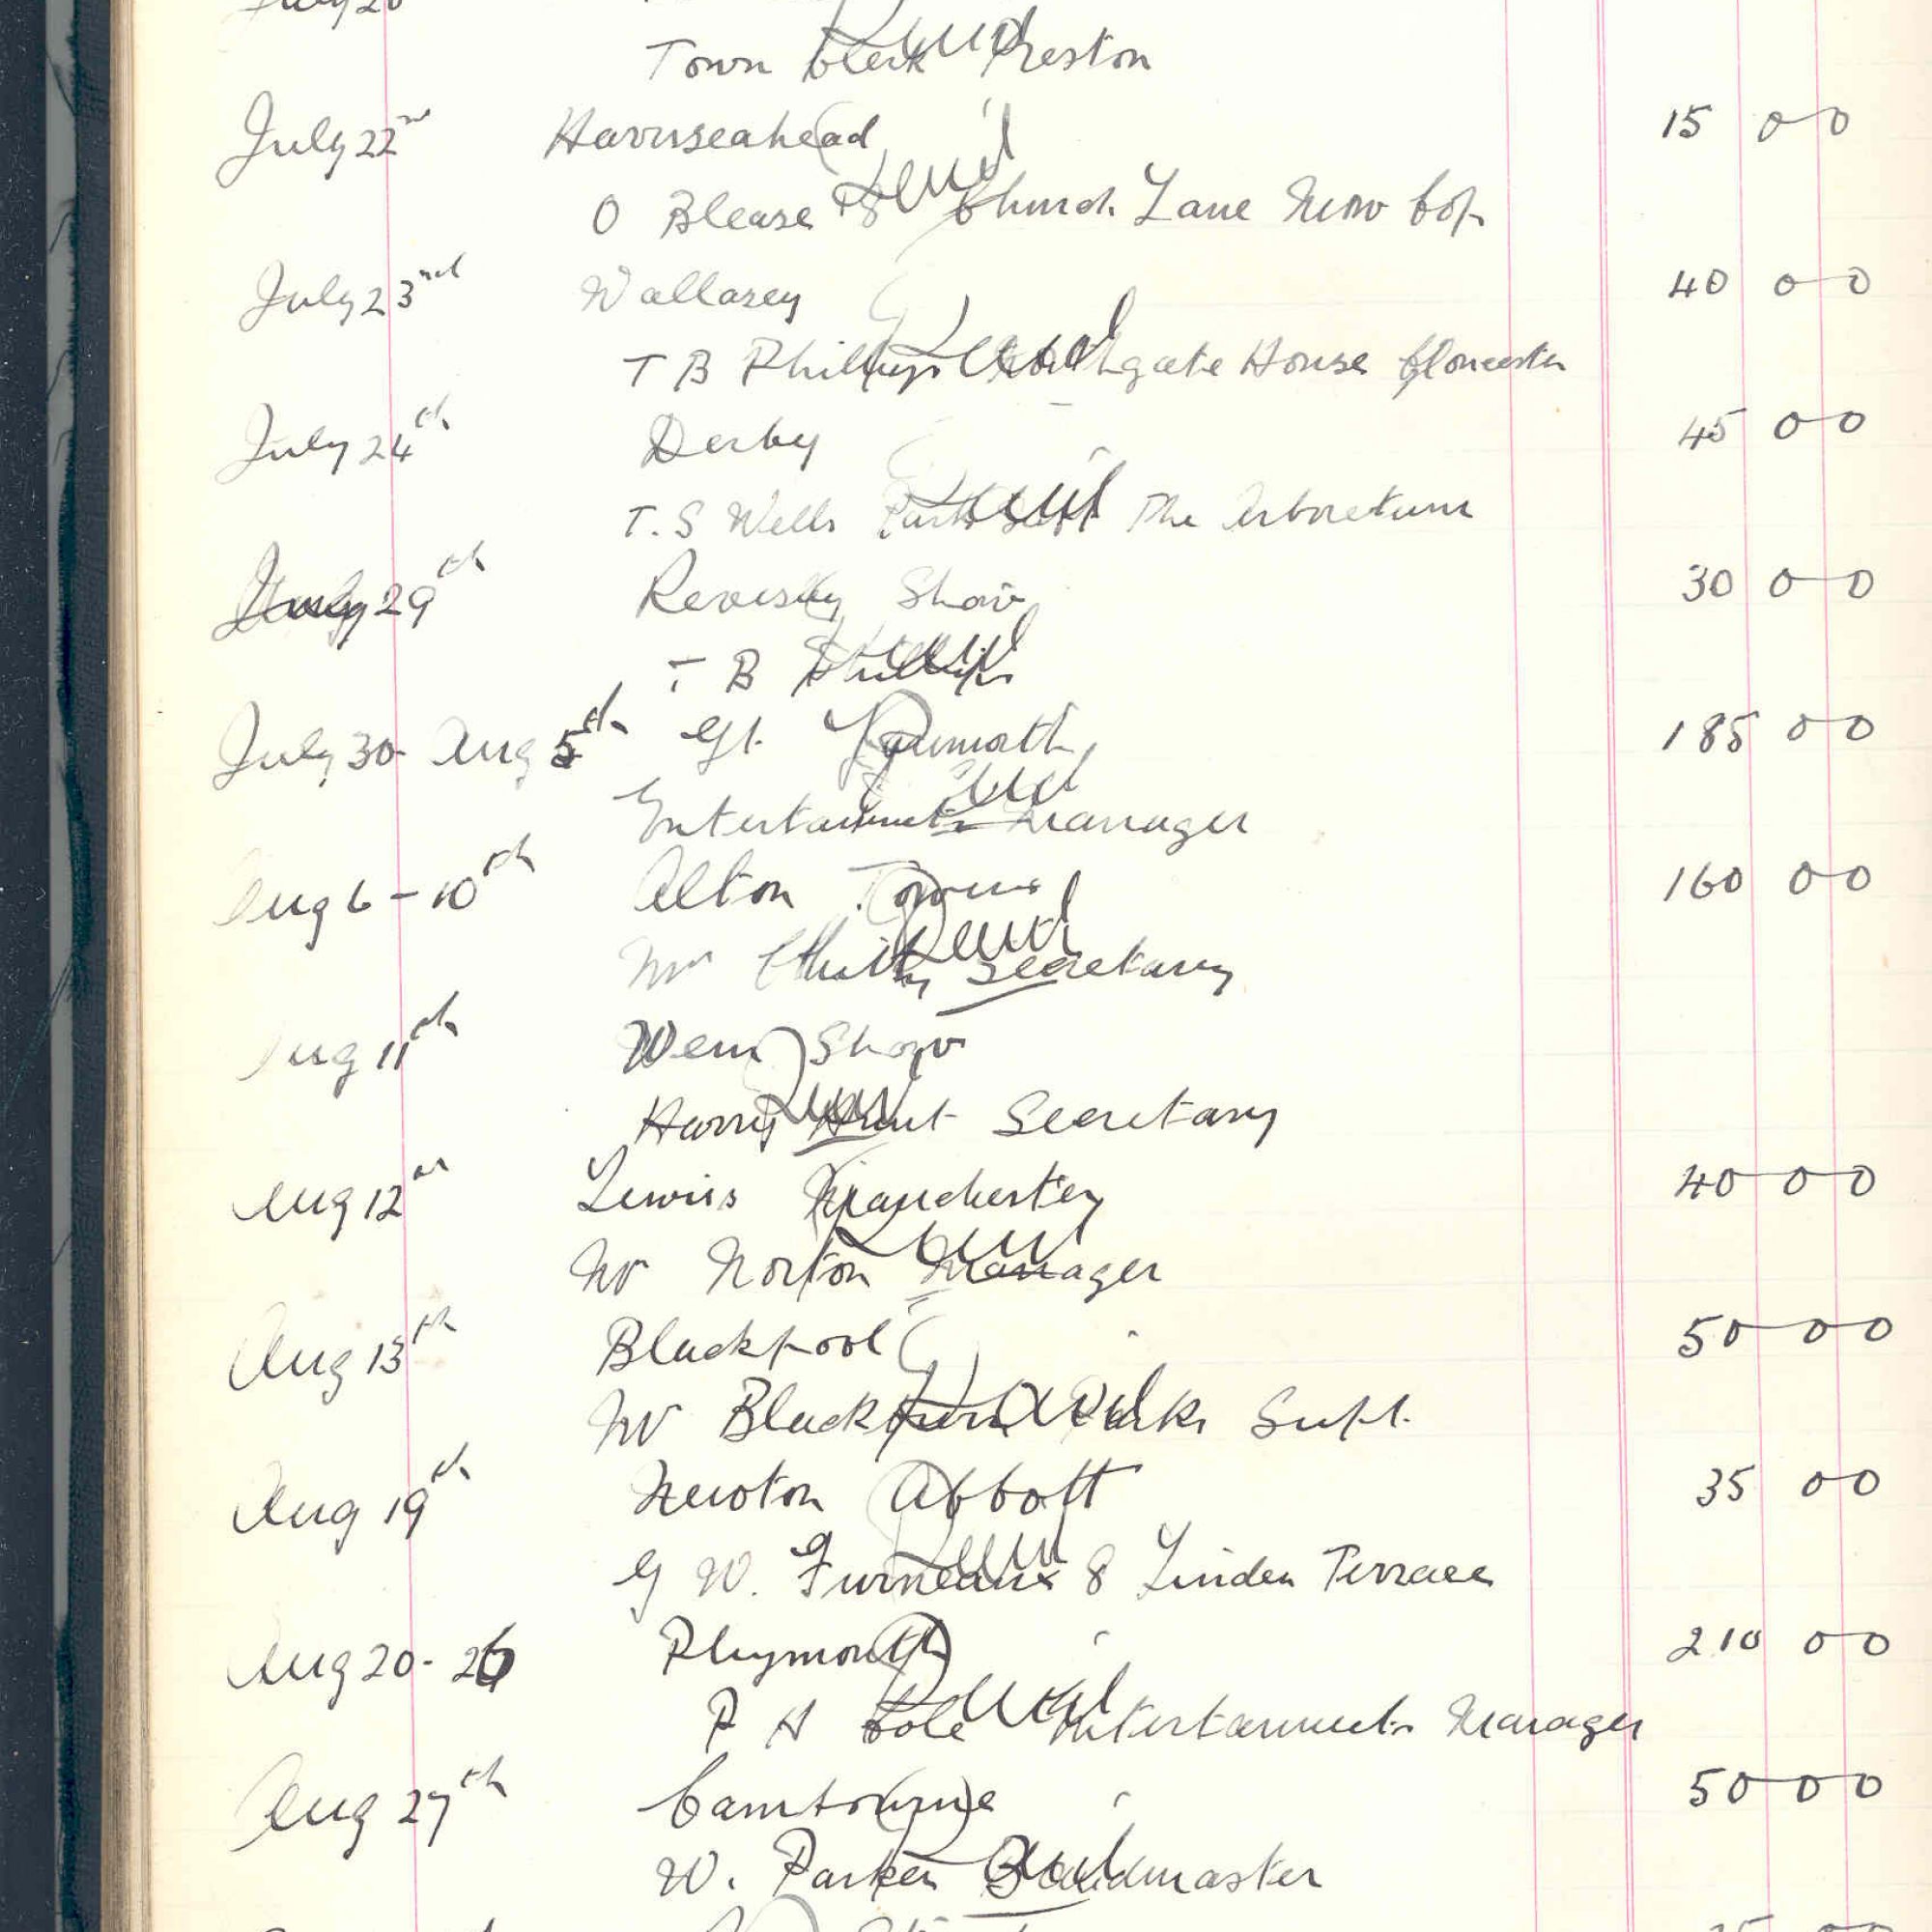 July 20
Town Clerk Preston
July 22nd Harriseahead 15 0 0
O Blease 78 Church Lane Mow Cop
July 23rd Wallasey 40 0 0
T B Phillips Northgate House Gloucester
July 24th Derby 45 0 0
T. S Wells Parks Supt The Arboretum
July 29th Revesby Show 30 0 0
T B Phillips
July 30 - Aug 5th Gt. Yarmouth 185 0 0
Entertainments Manager
Aug 6 - 10th Alton Towers 160 0 0
Mr Secretary
Aug 11th Wem Show
Harry Hunt Secretary
Aug 12th Lewiss Manchester 40 0 0
Mr Norton Manager
Aug 13th Blackpool 50 0 0
Mr Blackburn Parks Supt.
Aug 19th Newton Abbott 35 0 0
G W. Furneaux 8 Linden Terrace
Aug 20 - 26 Plymouth 210 0 0
P H Cole Entertainments Manager
Aug 27th Camborne 50 0 0
W. Parker Bandmaster